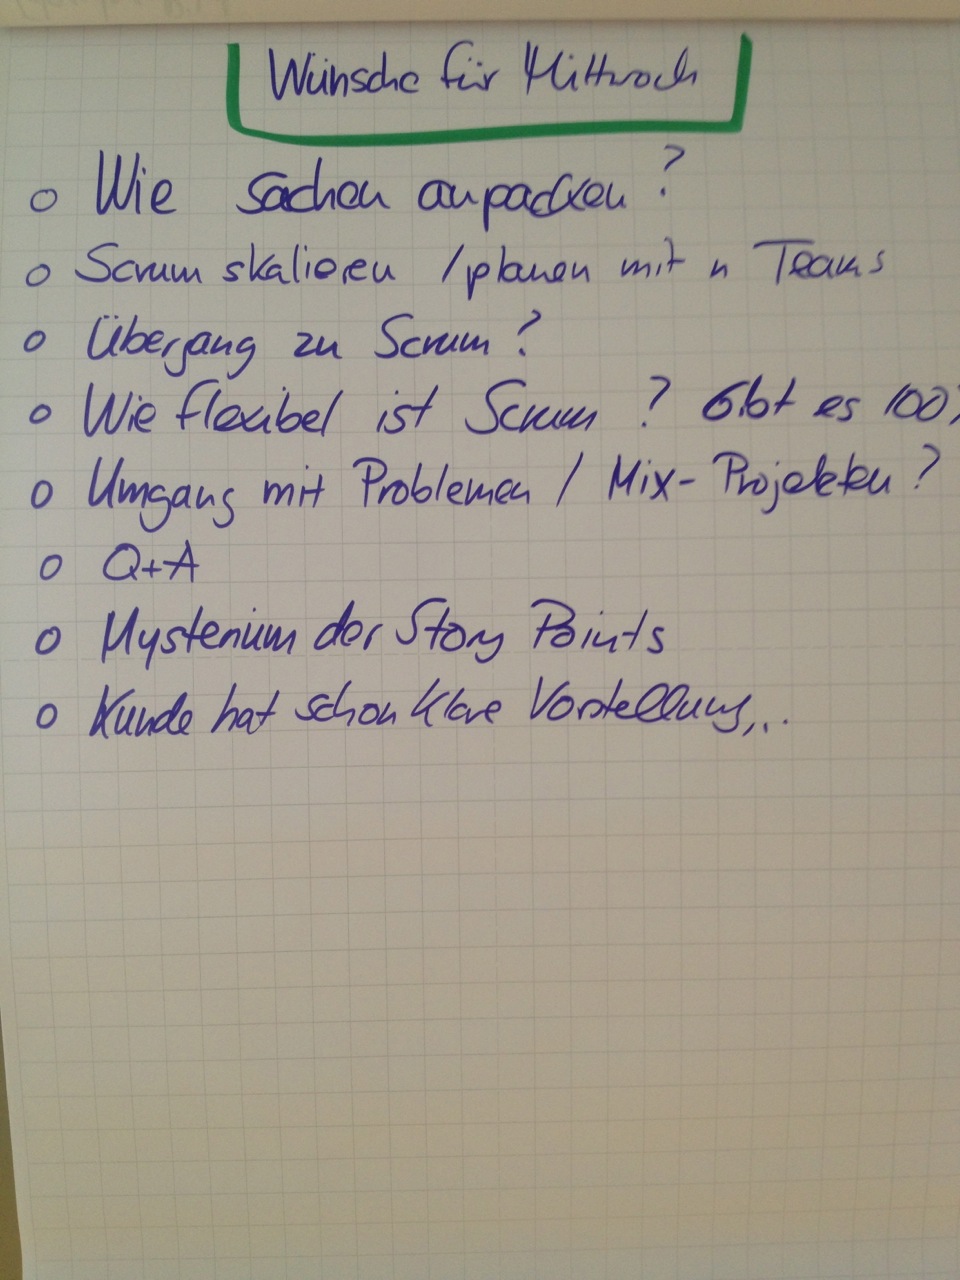 Wünsche für Mittwoch
o Wie Sachen anpacken?
o Scrum skalieren / planen mit n Teams
o Übergang zu Scrum?
o Wie flexibel ist Scrum? Gibt es 100%
o Umgang mit Problemen / Mix-Projekten?
o Q+A
o Mysterium der Story Points
o Kunde hat schon klare Vorstellung...